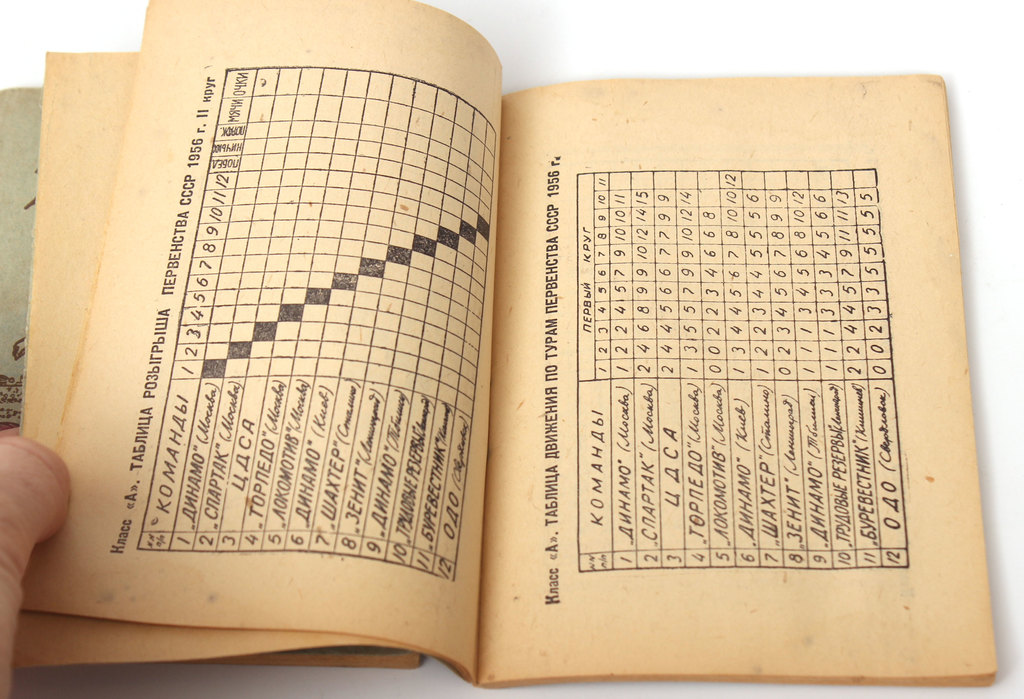 Класс «А». ТАБЛИЦА РОЗЫГРЫША ПЕРВЕНСТВА СССР 1956 г. II круг
NN п/п КОМАНДЫ 1 2 3 4 5 6 7 8 9 10 11 12 ПОБЕД НИЧЬИХ ПОРАЖ. МЯЧИ ОЧКИ
1 „ДИНАМО" (Москва)
2 „СПАРТАК" (Москва)
3 ЦДСА
4 „ТОРПЕДО" (Москва)
5 „ЛОКОМОТИВ" (Москва)
6 „ДИНАМО" (Киев)
7 „ШАХТЕР" (Сталино)
8 „ЗЕНИТ" (Ленинград)
9 „ДИНАМО" (Тбилиси)
10 „ТРУДОВЫЕ РЕЗЕРВЫ" (Ленинград)
11 „БУРЕВЕСТНИК" (Кишинев)
12 ОДО (Свердловск)
Класс «А». ТАБЛИЦА ДВИЖЕНИЯ ПО ТУРАМ ПЕРВЕНСТВА СССР 1956 г.
NN п/п КОМАНДЫ ПЕРВЫЙ КРУГ
1 2 3 4 5 6 7 8 9 10 11
1 „ДИНАМО" (Москва) 1 2 2 4 5 7 9 10 10 11
2 „СПАРТАК" (Москва) 2 4 6 8 9 9 10 12 14 15
3 ЦДСА 2 4 4 5 6 6 7 7 9 9
4 „ТОРПЕДО" (Москва) 1 3 5 5 7 9 9 10 12 14
5 „ЛОКОМОТИВ" (Москва) 0 0 2 2 3 4 6 6 8
6 „ДИНАМО" (Киев) 1 3 4 4 5 6 7 8 10 10 12
7 „ШАХТЕР" (Сталино) 1 2 2 3 4 4 5 5 5 6
8 „ЗЕНИТ" (Ленинград) 0 2 3 4 5 6 7 8 9 9
9 „ДИНАМО" (Тбилиси) 1 1 1 3 4 5 6 8 10 12
10 „ТРУДОВЫЕ РЕЗЕРВЫ" (Ленинград) 1 1 1 3 3 3 4 5 6 6
11 „БУРЕВЕСТНИК" (Кишинев) 2 2 4 4 5 7 9 11 11 13
12 ОДО (Свердловск) 0 0 2 3 3 5 5 5 5 5